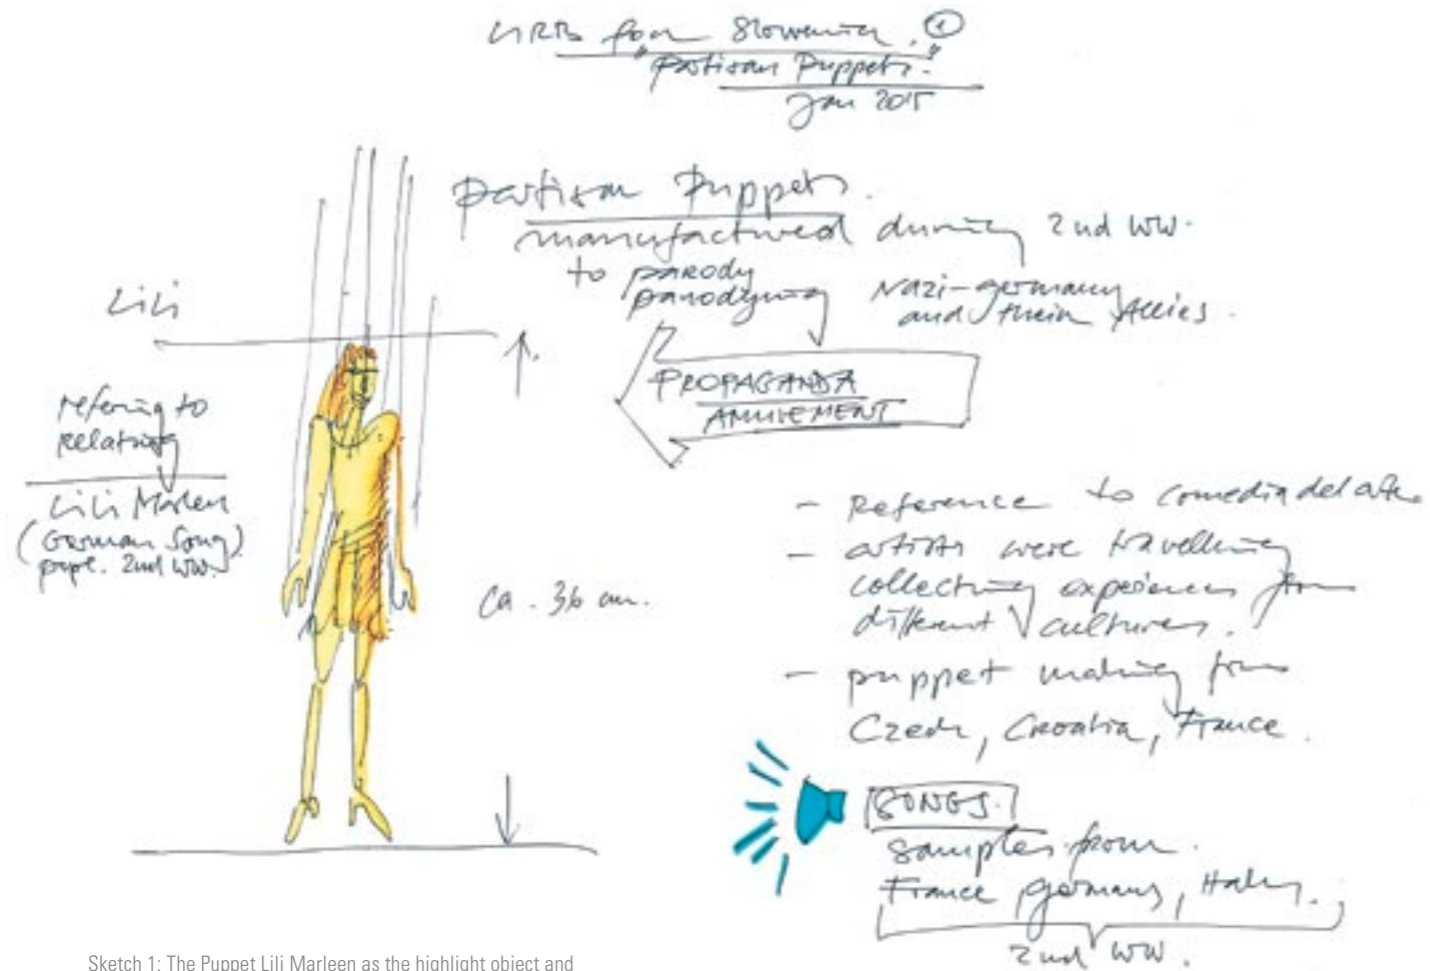 from Slowenia. 1
"Partisan Puppets."
Jan 2015
Partisan Puppets.
manufactured during 2nd WW.
to parody
parodying Nazi-germany
and their Allies.
PROPAGANDA
AMUSEMENT
Lili
refering to
relating
Lili Marleen
(German Song)
2nd WW.
ca. 36 cm.
- Reference to comedia del arte
- artists were travelling
collecting experiences from
different cultures.
- puppet making from
Czech, Croatia, France.
SONGS.
samples from
France, germany, Italy.
2nd WW.
Sketch 1: The Puppet Lili Marleen as the highlight object and